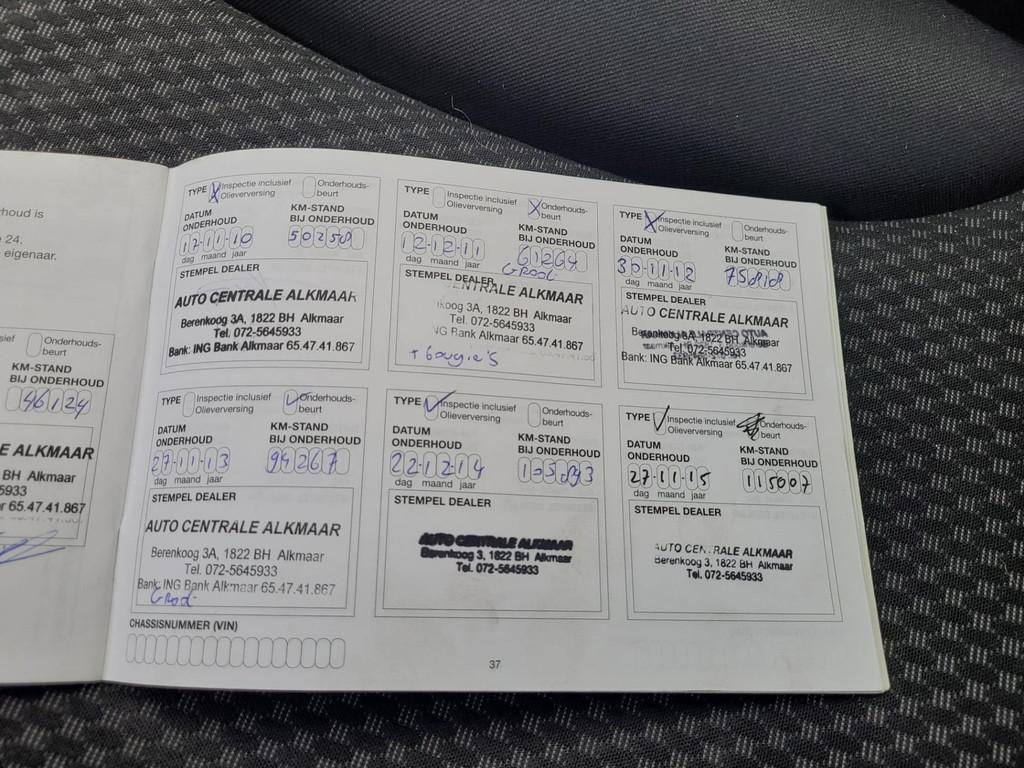 houd is
24.
eigenaar.
Onderhouds-
beurt
KM-STAND
BIJ ONDERHOUD
46124
E ALKMAAR
BH Alkmaar
5933
r 65.47.41.867
TYPE X Inspectie inclusief Olieverversing Onderhouds-beurt
DATUM ONDERHOUD
KM-STAND BIJ ONDERHOUD
12-11-10
dag maand jaar
STEMPEL DEALER
AUTO CENTRALE ALKMAAR
Berenkoog 3A, 1822 BH Alkmaar
Tel. 072-5645933
Bank: ING Bank Alkmaar 65.47.41.867
TYPE Inspectie inclusief Olieverversing X Onderhouds-beurt
DATUM ONDERHOUD
KM-STAND BIJ ONDERHOUD
12-12-11 61264
dag maand jaar
Groot
STEMPEL DEALER
NTRALE ALKMAAR
koog 3A, 1822 BH Alkmaar
Tel. 072-5645933
NG Bank Alkmaar 65.47.41.867
+ bougie's
TYPE X Inspectie inclusief Olieverversing Onderhouds-beurt
DATUM ONDERHOUD
KM-STAND BIJ ONDERHOUD
30-11-12
dag maand jaar
STEMPEL DEALER
AUTO CENTRALE ALKMAAR
Berenkoog 3A, 1822 BH Alkmaar
Tel. 072-5645933
Bank: ING Bank Alkmaar 65.47.41.867
TYPE Inspectie inclusief Olieverversing Onderhouds-beurt
DATUM ONDERHOUD
KM-STAND BIJ ONDERHOUD
27-11-13 94267
dag maand jaar
STEMPEL DEALER
AUTO CENTRALE ALKMAAR
Berenkoog 3A, 1822 BH Alkmaar
Tel. 072-5645933
Bank: ING Bank Alkmaar 65.47.41.867
Groot
TYPE Inspectie inclusief Olieverversing Onderhouds-beurt
DATUM ONDERHOUD
KM-STAND BIJ ONDERHOUD
22-12-14
dag maand jaar
STEMPEL DEALER
AUTO CENTRALE ALKMAAR
Berenkoog 3, 1822 BH Alkmaar
Tel. 072-5645933
TYPE Inspectie inclusief Olieverversing Onderhouds-beurt
DATUM ONDERHOUD
KM-STAND BIJ ONDERHOUD
27-11-15 115007
dag maand jaar
STEMPEL DEALER
AUTO CENTRALE ALKMAAR
Berenkoog 3, 1822 BH Alkmaar
Tel. 072-5645933
CHASSISNUMMER (VIN)
37